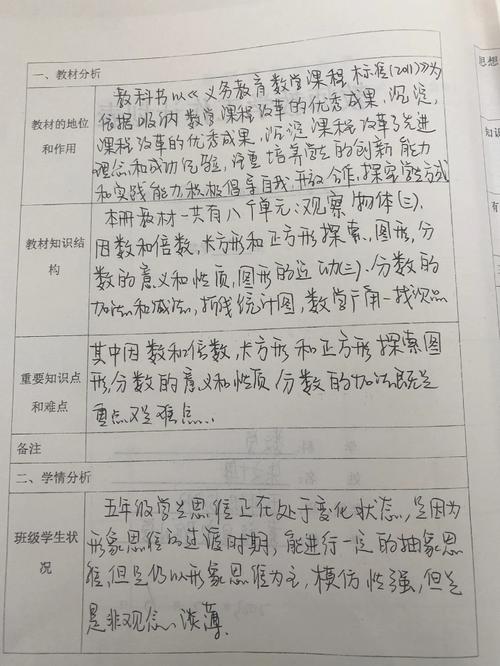 一、教材分析
教材的地位
和作用
教科书以《义务教育数学课程标准(2011)》为
依据吸纳数学课程改革的优秀成果,沉淀,
课程改革的优秀成果,沉淀课程改革先进
理念和成功经验,注重培养学生的创新能力
和实践能力积极倡导自我,开放合作,探究学习方式
教材知识结
构
本册教材一共有八个单元:观察物体(三).
因数和倍数,长方形和正方形探索,图形,分
数的意义和性质,图形的运动(三).分数的
加法和减法,折线统计图,数学广角一找次品
重要知识点
和难点
其中因数和倍数,长方形和正方形探索图
形,分数的意义和性质,分数的加法既是
重点又是难点.
备注
二、学情分析
班级学生状
况
五年级学生思维正在处于变化状态,是因为
形象思维的过渡时期,能进行一定的抽象思
维,但是仍以形象思维为主,模仿性强,但是
是非观念淡薄.
思想
知识
有